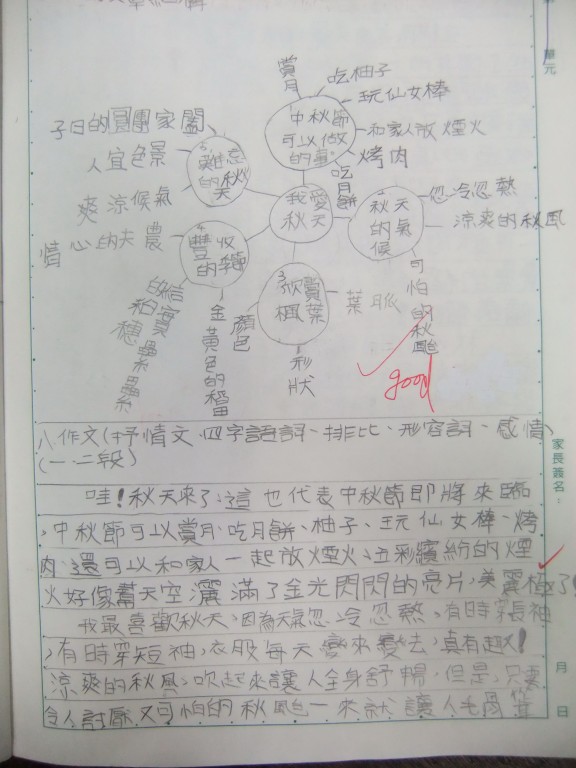 單元
賞月
吃柚子
玩仙女棒
和家人放煙火
烤肉
吃月餅
中秋節
可以做
的事
我愛
秋天
2 秋天
的氣
候
忽冷忽熱
涼爽的秋風
可怕的秋颱
3 欣賞
楓葉
葉脈
形狀
顏色
4 豐收
的季節
金黃色的稻田
農夫的心情
5 難忘
的秋
天
闔家團圓的日子
景色宜人
氣候涼爽
good
八作文(抒情文、四字語詞、排比、形容詞、感情)
(一、二段)
哇!秋天來了,這也代表中秋節即將來臨
,中秋節可以賞月、吃月餅、柚子、玩仙女棒、烤
肉,還可以和家人一起放煙火,五彩繽紛的煙
火好像幫天空灑滿了金光閃閃的亮片,美麗極了!
我最喜歡秋天,因為天氣忽冷忽熱,有時穿長袖
,有時穿短袖,衣服每天變來變去,真有趣!
涼爽的秋風,吹起來讓人全身舒暢,但是,只要
令人討厭又可怕的秋颱一來就讓人毛骨
家長簽名:
月
日